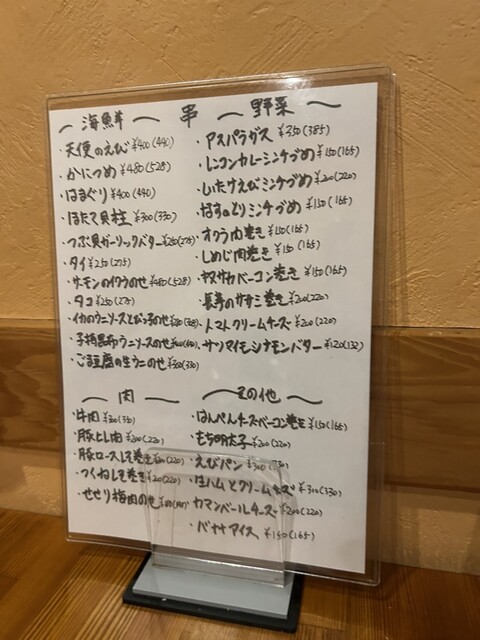 〜 海鮮 〜 串 〜 野菜 〜
天使のえび ¥400(440)
かにつめ ¥480(528)
はまぐり ¥400(440)
ほたて貝柱 ¥300(330)
つぶ貝ガーリックバター ¥250(275)
タイ ¥250(275)
サーモンのイクラのせ ¥480(528)
タコ ¥250(275)
イカのウニソースとびっ子のせ
子持昆布ウニソースのせ
ごま豆腐の生ウニのせ ¥300(330)
・アスパラガス ¥350(385)
・レンコンカレーミンチづめ ¥150(165)
・しいたけえびミンチづめ ¥200(220)
・なすのとりミンチづめ ¥150(165)
・オクラ肉巻き ¥150(165)
・しめじ肉巻き ¥150(165)
・ベーコン巻き ¥150(165)
・長芋のササミ巻き ¥200(220)
・トマトクリームチーズ ¥200(220)
・サツマイモシナモンバター ¥120(132)
〜 肉 〜
・牛肉 ¥300(330)
・豚ヒレ肉 ¥200(220)
・豚ロースしそ巻き ¥200(220)
・つくねしそ巻き ¥200(220)
・せせり梅肉のせ
〜 その他 〜
・はんぺんチーズベーコン巻き ¥150(165)
・もち明太子 ¥200(220)
・えびパン ¥300(330)
・生ハムとクリームチーズ ¥300(330)
・カマンベールチーズ ¥200(220)
・バナナアイス ¥150(165)